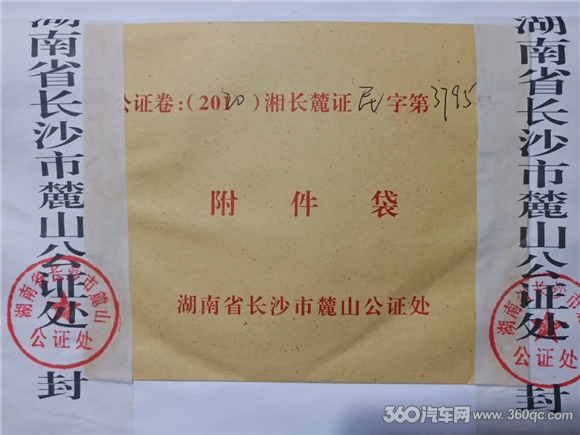 湖南省长沙市麓山公证处 封
公证卷：（2020）湘长麓证民字第3795
附件袋
湖南省长沙市麓山公证处
湖南省长沙市麓山公证处 封
湖南省长沙市麓山
公证处
湖南省长沙市麓山
公证处
360汽车网www.360qc.com